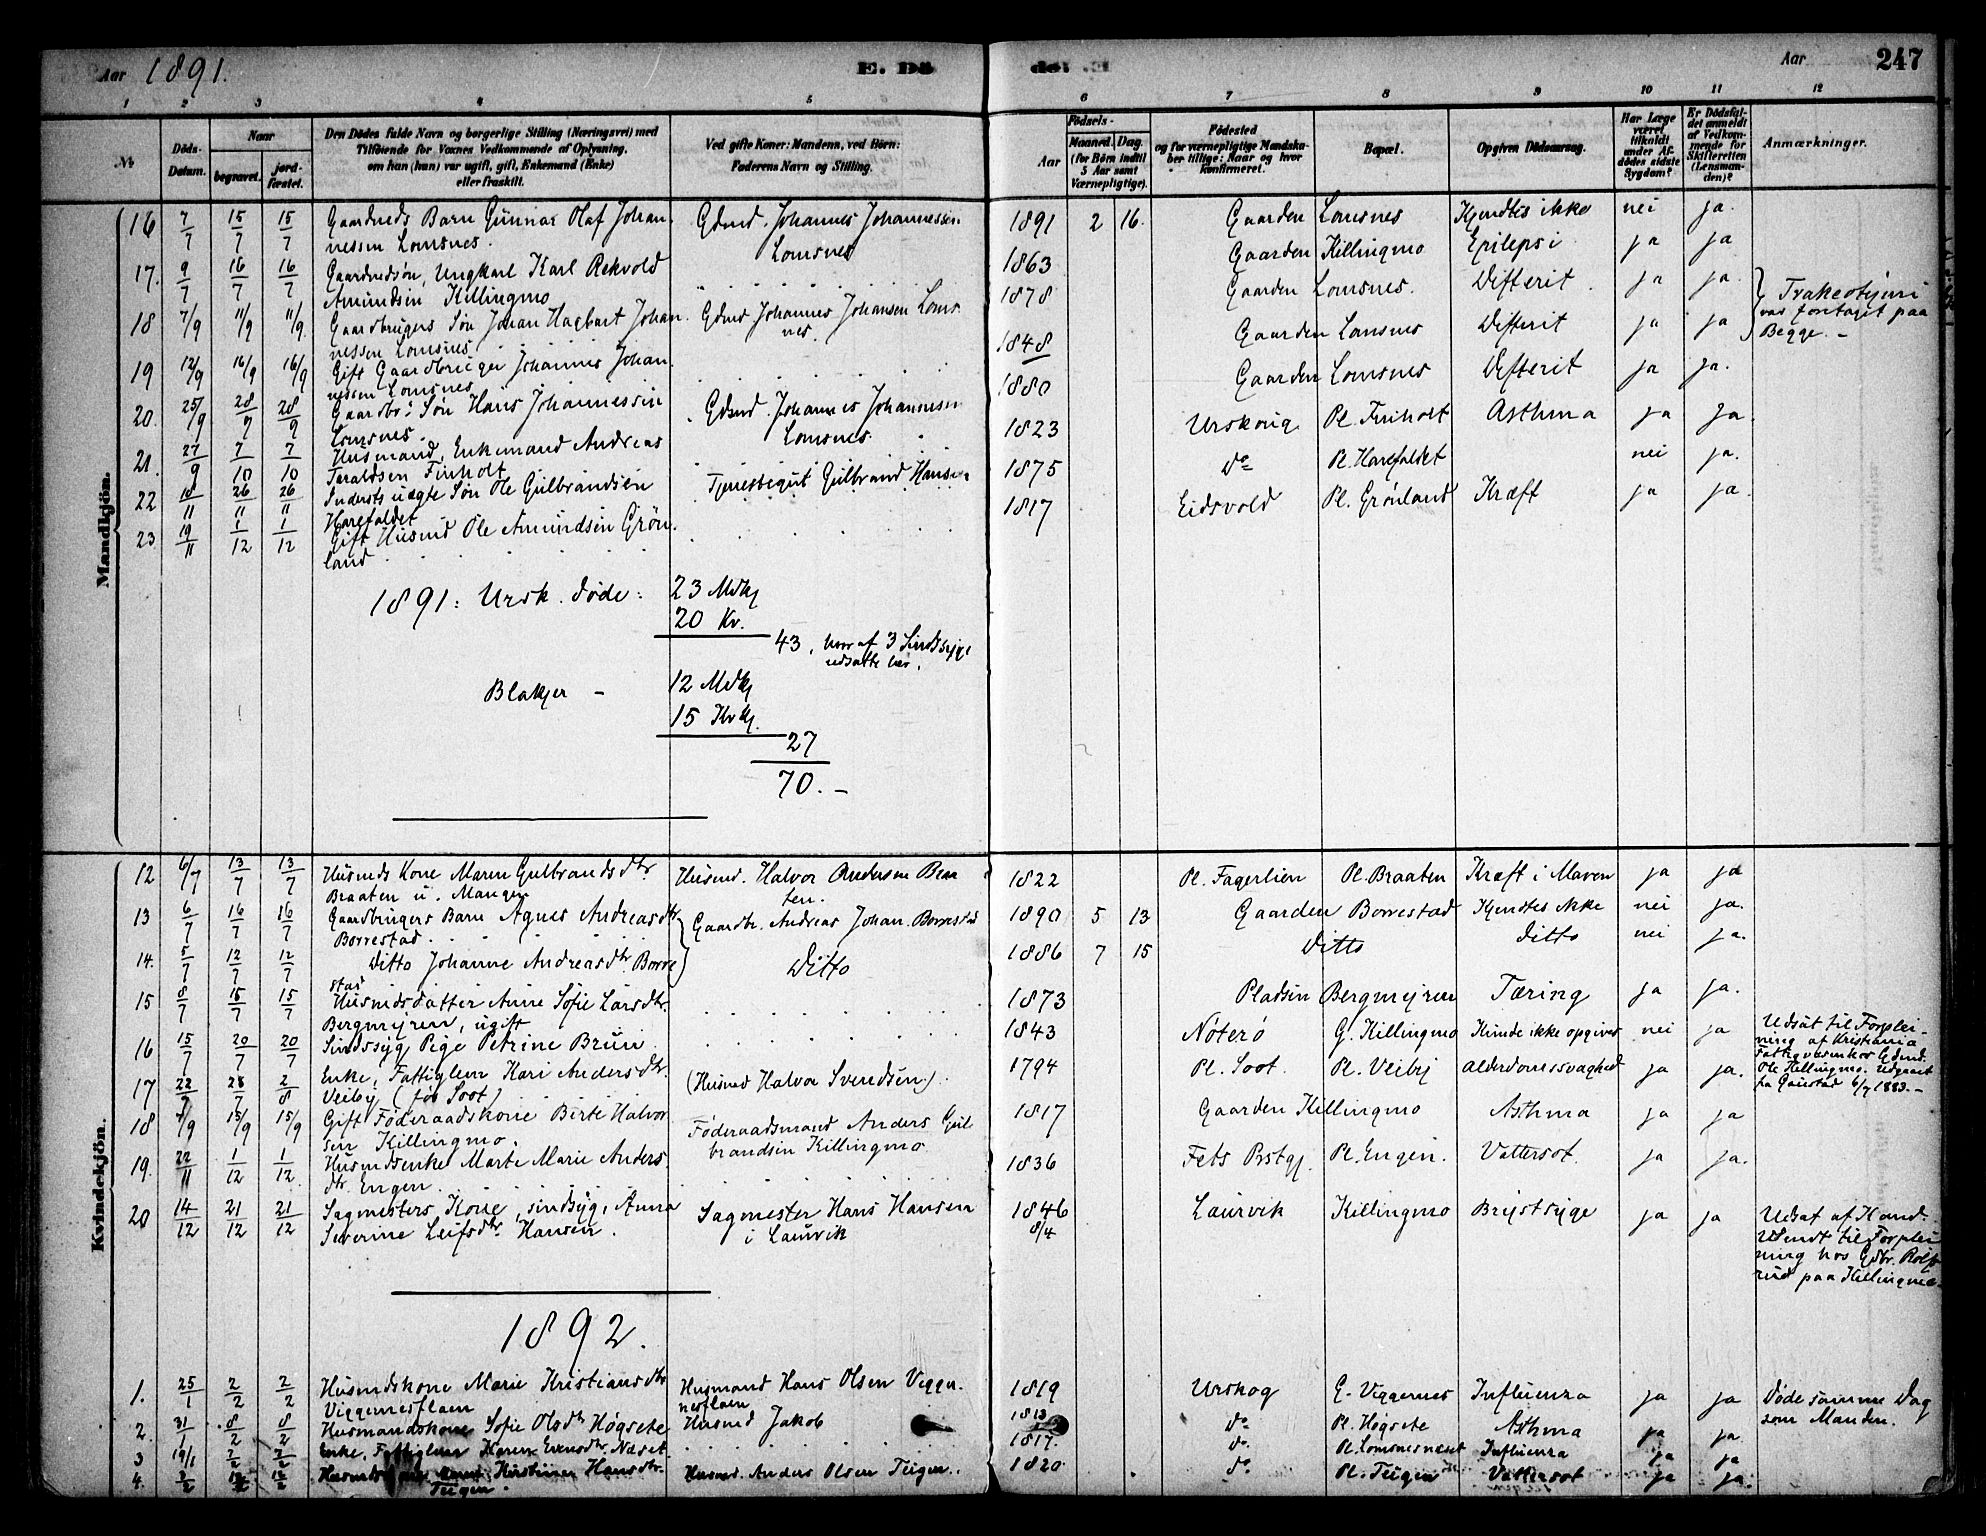 Aar 1891. E. Dö de. Aar 247
1 2 3 4 5 6 7 8 9 10 11 12
No Döds-Datum. Naar begravet. jord-fæstet. Den Dödes fulde Navn og borgerlige Stilling (Næringsvei) med Tilföiende for Voxnes Vedkommende af Oplysning, om han (hun) var ugift, gift, Enkemand (Enke) eller fraskilt. Ved gifte Koner: Mandens, ved Börn: Faderens Navn og Stilling. Aar Födsels- Maaned. Dag. (for Börn indtil 5 Aar samt Værnepligtige). Födested og for værnepligtige Mandskaber tillige: Naar og hvor konfirmeret. Bopæl. Opgiven Dödsaarsag. Har Læge været tilkaldt under Afdödes sidste Sygdom? Er Dödsfaldet anmeldt af Vedkommende for Skifteretten (Lensmanden)? Anmærkninger.
Mandkjön.
16 7/7 15/7 15/7 Gaardmds Barn Gunnar Olaf Johan- Gdmd. Johannes Johannessen 1891 2 16. Gaarden Lomsnes Kjendtes ikke nei ja.
nessen Lomsnes. Lomsnes
17. 9/7 16/7 16/7 Gaardmdsøn, Ungkarl Karl Rekvold 1863 Gaarden Killingmo Epilepsi ja ja
Amundsen Killingmo
18 7/9 11/9 11/9 Gaardbrugers Søn Johan Hagbart Johan- Gdmd Johannes Johansen Loms- 1878 Gaarden Lomsnes. Difterit ja ja. Trakeotomi
nessen Lomsnes nes. var foretaget paa
Begge. -
19 12/9 16/9 16/9 Gift Gaardbruger Johannes Johan- 1848 Gaarden Lomsnes Difterit ja ja
nessen Lomsnes
20. 25/9 28/9 28/9 Gaardbr: Søn Hans Johannessen Gdmd. Johannes Johannesen 1880 Gaarden Lomsnes Difterit ja ja.
Lomsnes. Lomsnes.
21. 27/9 7/10 7/10 Husmand, Enkemand Andreas 1823 Urskoug Pl. Finholt Asthma ja ja
Taraldsen Finholt
22 18/11 26/11 26/11 Indersts uægte Søn Ole Gulbrandsen Tjenestegut Gulbrand Hansen 1875 do Pl. Harefaldet nei ja.
Harefaldet
23 19/11 1/12 1/12 Gift Husmd Ole Amundsen Grøn- 1817 Eidsvold Pl. Grønland Kræft ja ja.
land
1891: Ursk. døde: 23 Mdkj
20 Kv.
43, hvoraf 3 Sindssyge
udsatte her.
Blakjer - 12 Mdkj
15 Kvkj.
27
70. -
Kvindekjön.
12 6/7 13/7 13/7 Husmds Kone Maren Gulbrandsdtr. Husmd. Halvor Andersen Braa- 1822 Pl. Fagerlien Pl. Braaten Kræft i Maven ja ja
Braaten u. Mangen ten.
13 6/7 16/7 16/7 Gaardbrugers Barn Agnes Andreasdtr Gaardbr. Andreas Johan. Borrestad 1890 5 13 Gaarden Borrestad Kjendtes ikke nei ja.
Borrestad.
14. 5/7 12/7 12/7 Ditto Johanne Andreasdtr. Borre- Ditto 1886 7 15 Ditto ditto nei ja.
stad
15 8/7 15/7 15/7 Husmdsdatter Anne Sofie Larsdtr. 1873 Pladsen Bergmyren Tæring ja ja.
Bergmyren, ugift
16 15/7 20/7 20/7 Sindssyg Pige Petrine Brun 1843 Nøterø G. Killingmo Kunde ikke opgives nei ja Udsat til Forplei-
ning af Kristiania
Fattigvæsen hos Gdmd.
Ole Killingmo. Udgaaet
fra Gaustad 6/7 1883. -
17 22/7 28/7 2/8 Enke, Fattiglem Kari Andersdtr. (Husmd Halvor Svendsen) 1794 Pl. Soot. Pl. Veiby Alderdomssvaghed ja ja.
Veiby (fød Soot)
18 7/9 15/9 15/9 Gift Føderaadskone Birte Halvor- Føderaadsmand Anders Gul- 1817 Gaarden Killingmo Asthma ja ja
sen Killingmo. brandsen Killingmo
19. 22/11 1/12 1/12. Husmdsenke Marte Marie Anders- 1836 Fets Prstgj. Pl. Engen. Vattersot. ja ja.
dtr. Engen
20 14/12 21/12 21/12 Sagmesters Kone, sindsyg, Anna Sagmester Hans Hansen 1846 8/4 Laurvik Killingmo Brystsyge ja ja Udsat af
Severine Leifsdtr. Hansen. i Laurvik Udsendt til Forplei-
ning hos Gdbr. Rolfs-
rud paa Killingmo.
1892.
1. 25/1 2/2 2/2 Husmdskone Marie Kristiansdtr Husmand Hans Olsen Vigger- 1819 Urskog G. Viggernes Influenza ja ja Døde samme Dag
Viggernesflaen nesflaen som Manden.
2. 31/1 8/2 8/2 Husmandskone Sofie Olsdtr Høgsete Husmd Jakob 1813 do Pl. Høgsete Asthma ja ja
3 19/1 2/2 2/2 Enke, Fattiglem Karen Evensdtr. Næset 1817. do. Pl. Lomsnesnæset Influenza ja ja
4. 3/2 12/2 12/2 Kirstine Hansdtr. Husmd. Anders Olsen Teigen. 1820 do. Pl. Teigen Vattersot ja ja.
Teigen.